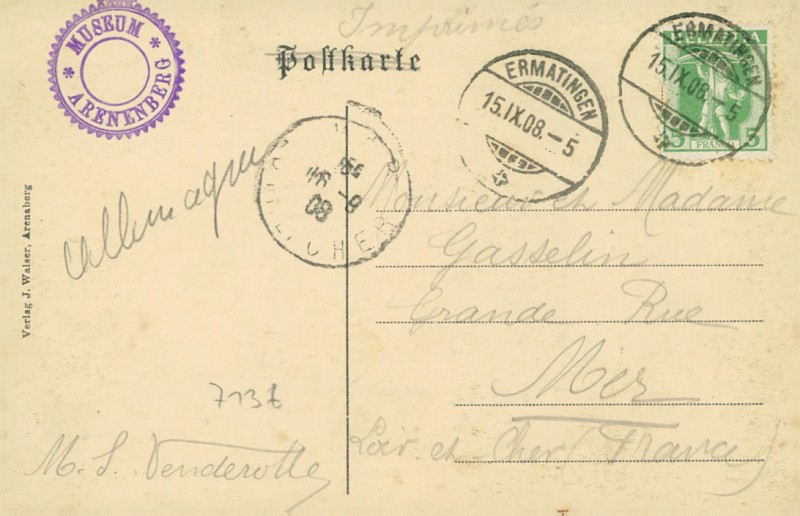 Imprimés
Postkarte
MUSEUM
ARENENBERG
ERMATINGEN
15.IX.08.–5
ERMATINGEN
15.IX.08.–5
5 FRANCO 5
MER
CHER
Allemagne
Monsieur et Madame
Gasselin
Grande Rue
Mer
Loir et Cher (France)
7136
M. S. Venderolle
Verlag J. Walser, Arenaberg